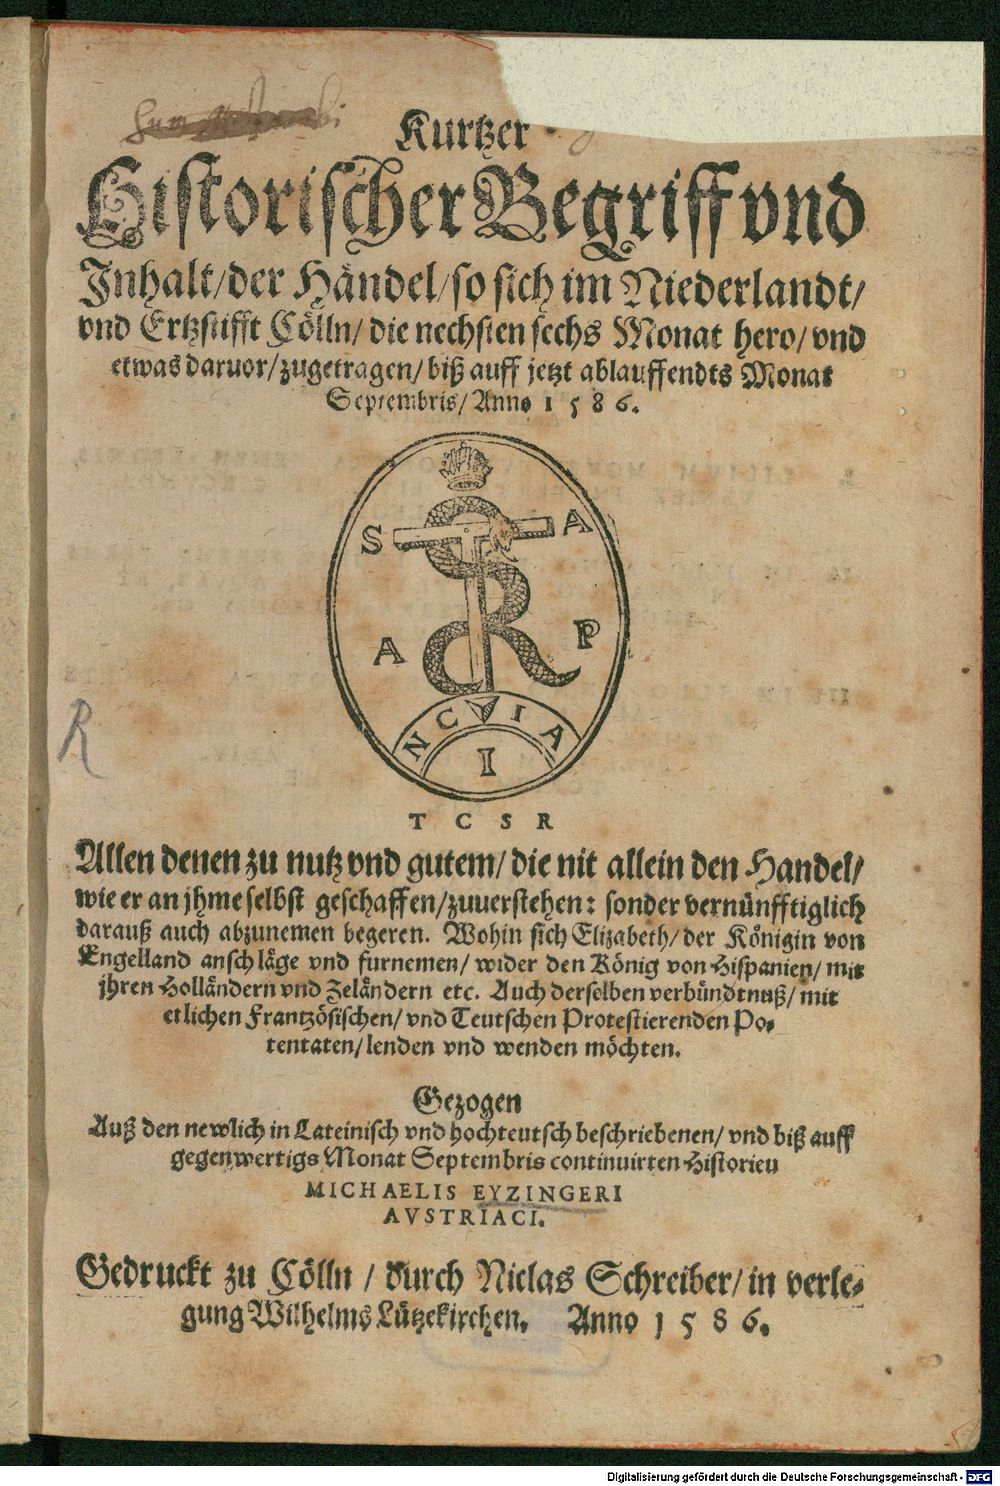 Kurtzer
Historischer Begriff vnd
Inhalt/ der Händel/ so sich im Niederlandt/
vnd Ertzstifft Cölln/ die nechsten sechs Monat hero/ vnd
etwas daruor/ zugetragen/ biß auff jetzt ablauffendts Monat
Septembris/ Anno 1586.
S A
A P
N C V I A
I
T C S R
Allen denen zu nutz vnd gutem/ die nit allein den Handel/
wie er an jhme selbst geschaffen/ zuuerstehen: sonder vernünfftiglich
darauß auch abzunemen begeren. Wohin sich Elizabeth/ der Königin von
Engelland anschläge vnd furnemen/ wider den König von Hispanien/ mit
jhren Holländern vnd Zeländern etc. Auch derselben verbündtnuß/ mit
etlichen Frantzösischen/ vnd Teutschen Protestierenden Po-
tentaten/ lenden vnd wenden möchten.
Gezogen
Auß den newlich in Lateinisch vnd hochteutsch beschriebenen/ vnd biß auff
gegenwertigs Monat Septembris continuirten Historien
MICHAELIS EYZINGERI
AVSTRIACI.
Gedruckt zu Cölln / durch Niclas Schreiber/ in verle-
gung Wilhelms Lützekirchen. Anno 1586.
R
Digitalisierung gefördert durch die Deutsche Forschungsgemeinschaft - DFG